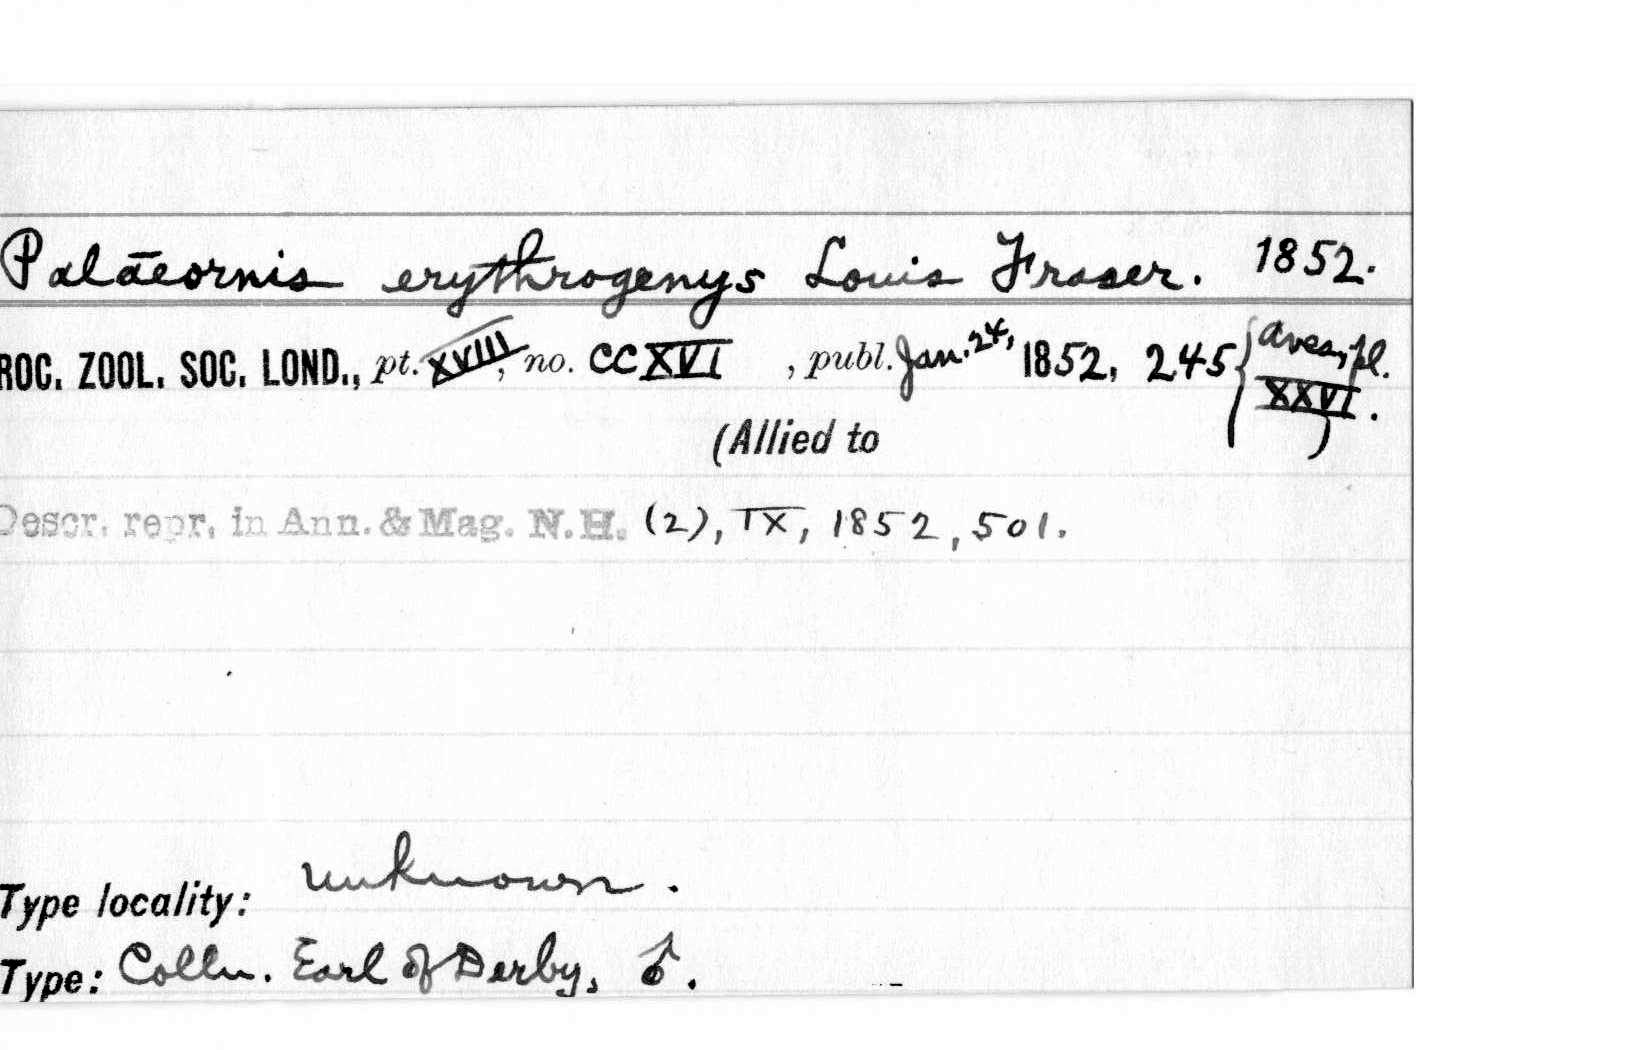 Palaeornis erythrogenys Louis Fraser. 1852.
ROC. ZOOL. SOC. LOND., pt. XVIII, no. CCXVI, publ. Jan. 24, 1852, 245 {Aves, pl. XXVI.)
(Allied to
Descr. repr. in Ann. & Mag. N.H. (2), IX, 1852, 501.
Type locality: unknown.
Type: Colln. Earl of Derby, ♂.